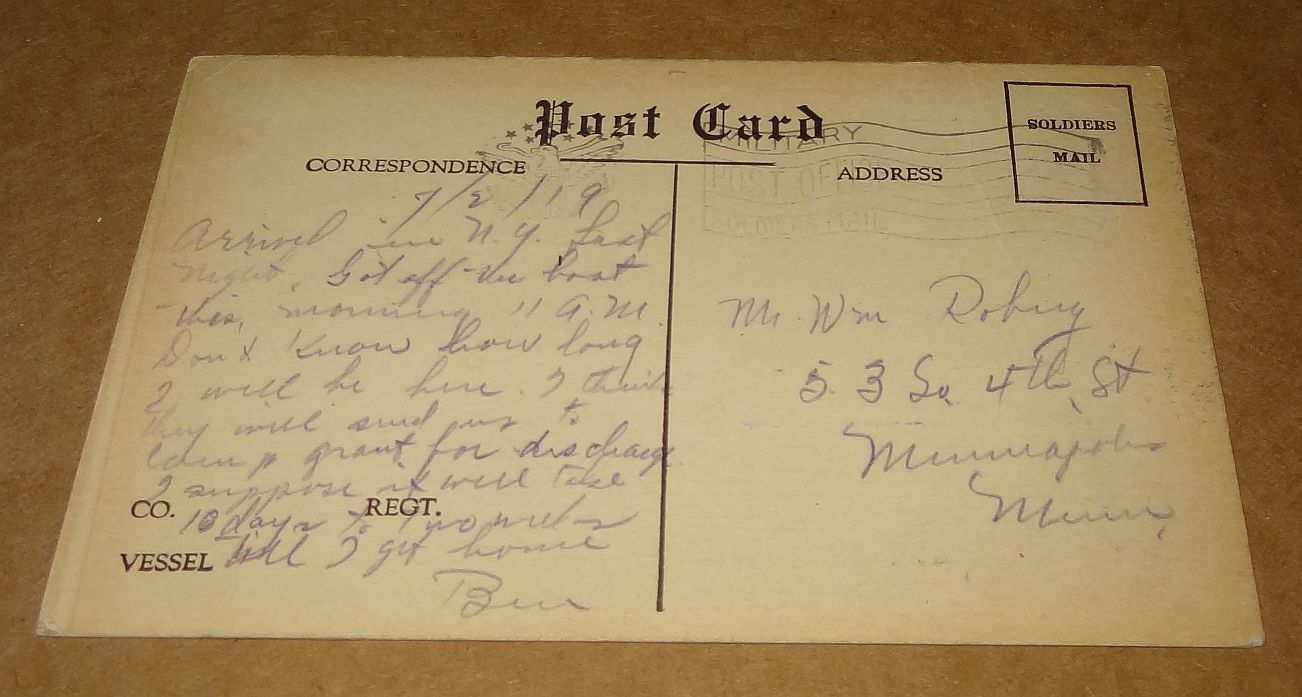 Post Card
SOLDIERS
MAIL
MILITARY
POST OFFICE
SOLDIERS MAIL
CORRESPONDENCE
ADDRESS
7/2/19
Arrived in N.Y. Last
Night. Got off the boat
this, morning 11 A.M.
Don't Know how long
I will be here. I think
they will send us to
Camp grant for discharge
I suppose it will take
CO. REGT.
10 days to two weeks
VESSEL
till I get home
Ben
Mr. Wm
53 So. 4th St
Minneapolis
Minn.